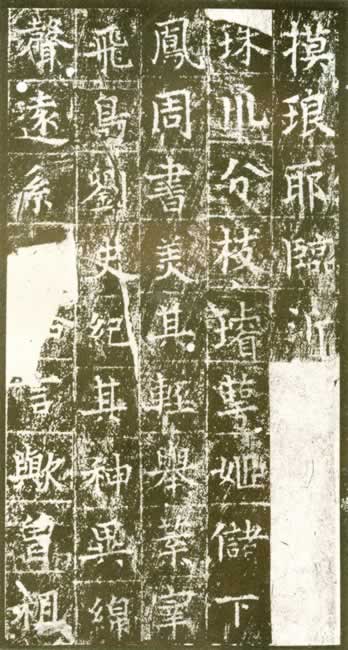 摸琅耶臨沂
珠川分枝璿萼姬儲下
鳳周書美其輕舉葉宰
飛鳧劉史紀其神異綿
聲遠系言歟曾祖